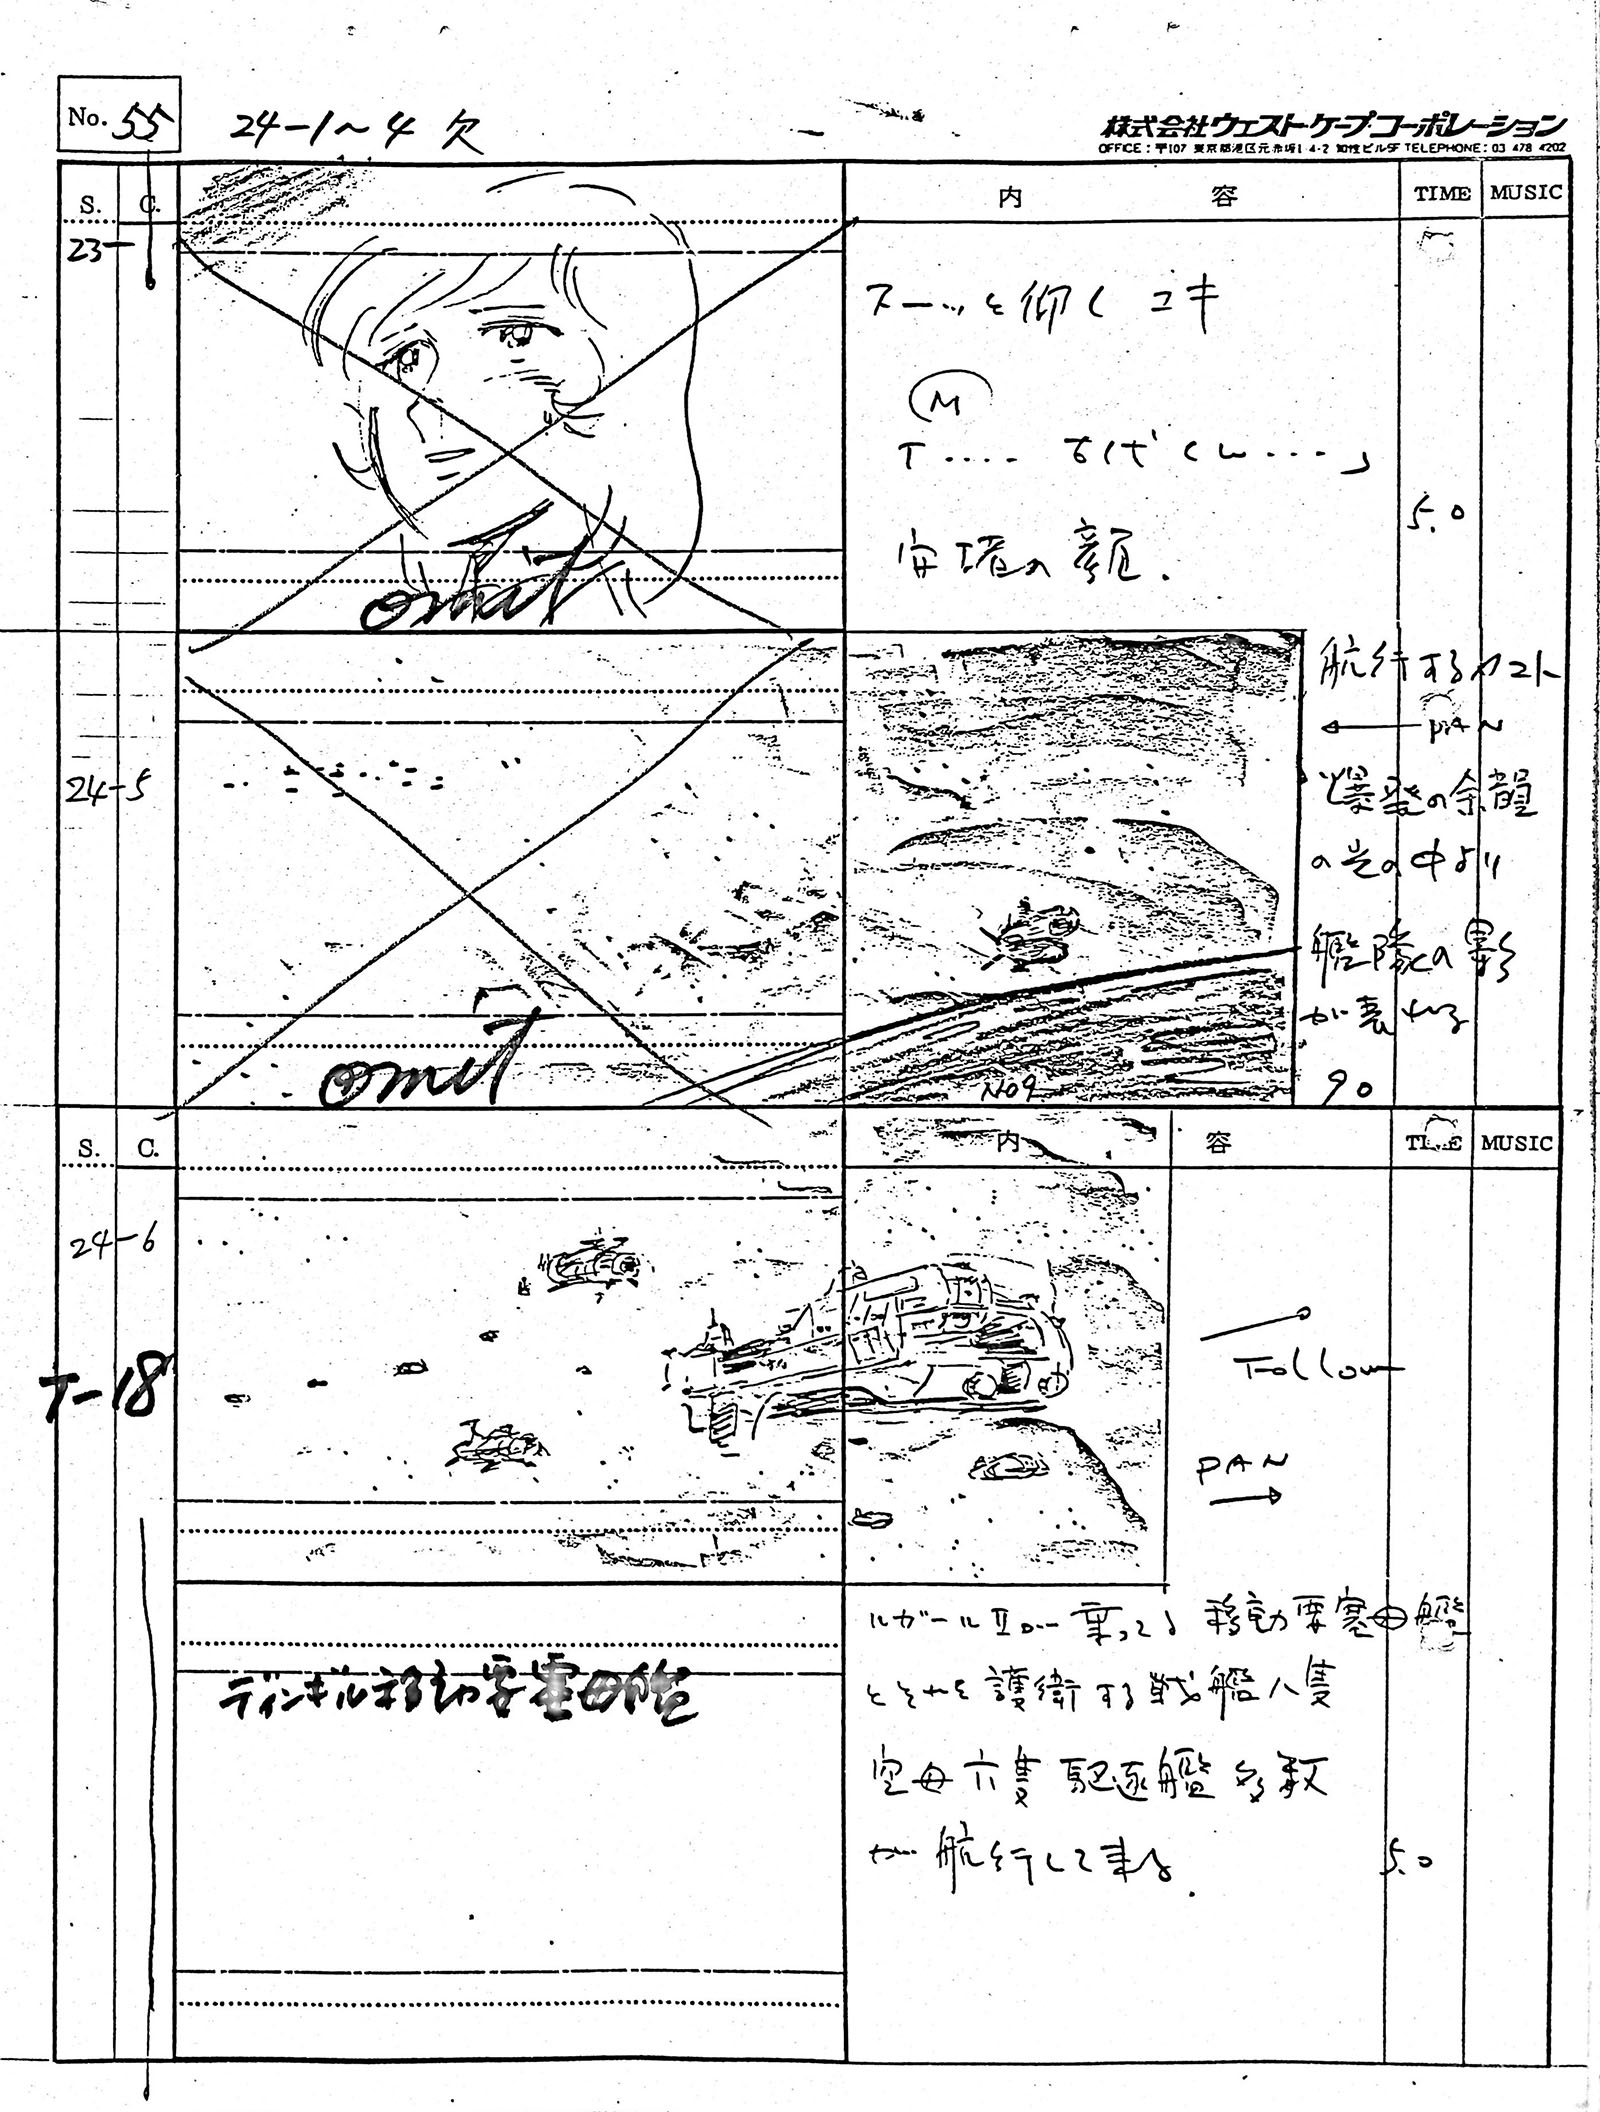 No. 55
24-1~4 欠
株式会社ウェストケープ・コーポレーション
OFFICE: 〒107 東京都港区元赤坂1-4-2 知性ビル5F TELEPHONE: 03 478 4202
S. C. 内 容 TIME MUSIC
23-
スーッと仰ぐ ユキ
M
「.... 古代くん...」
安堵の顔.
5.0
omit
24-5
航行する
PAN
爆発の余韻
の光の中より
艦隊の影
が表われる
90
No9
omit
S. C. 内 容 TIME MUSIC
24-6
T-18
Follow
PAN
ルガールIIの乗ってる 移動要塞母艦
とそれを護衛する戦艦八隻
空母六隻 駆逐艦多数
が航行して来る.
5.0
ディンギル移動要塞母艦